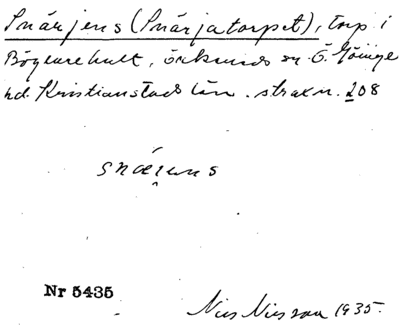 Snärjens (Snärjatorpet), torp i
Bögerehult, Örkeneds sn Ö. Göinge
hd. Kristianstads län. strax n. 208
snæ̣ŕens
Nr 5435
Nils Nilsson 1935.